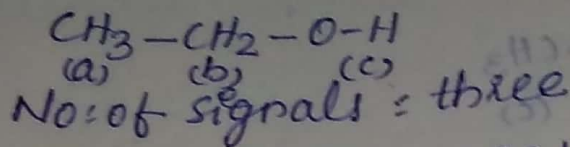 CH3-CH2-O-H
(a) (b) (c)
No: of signals = three